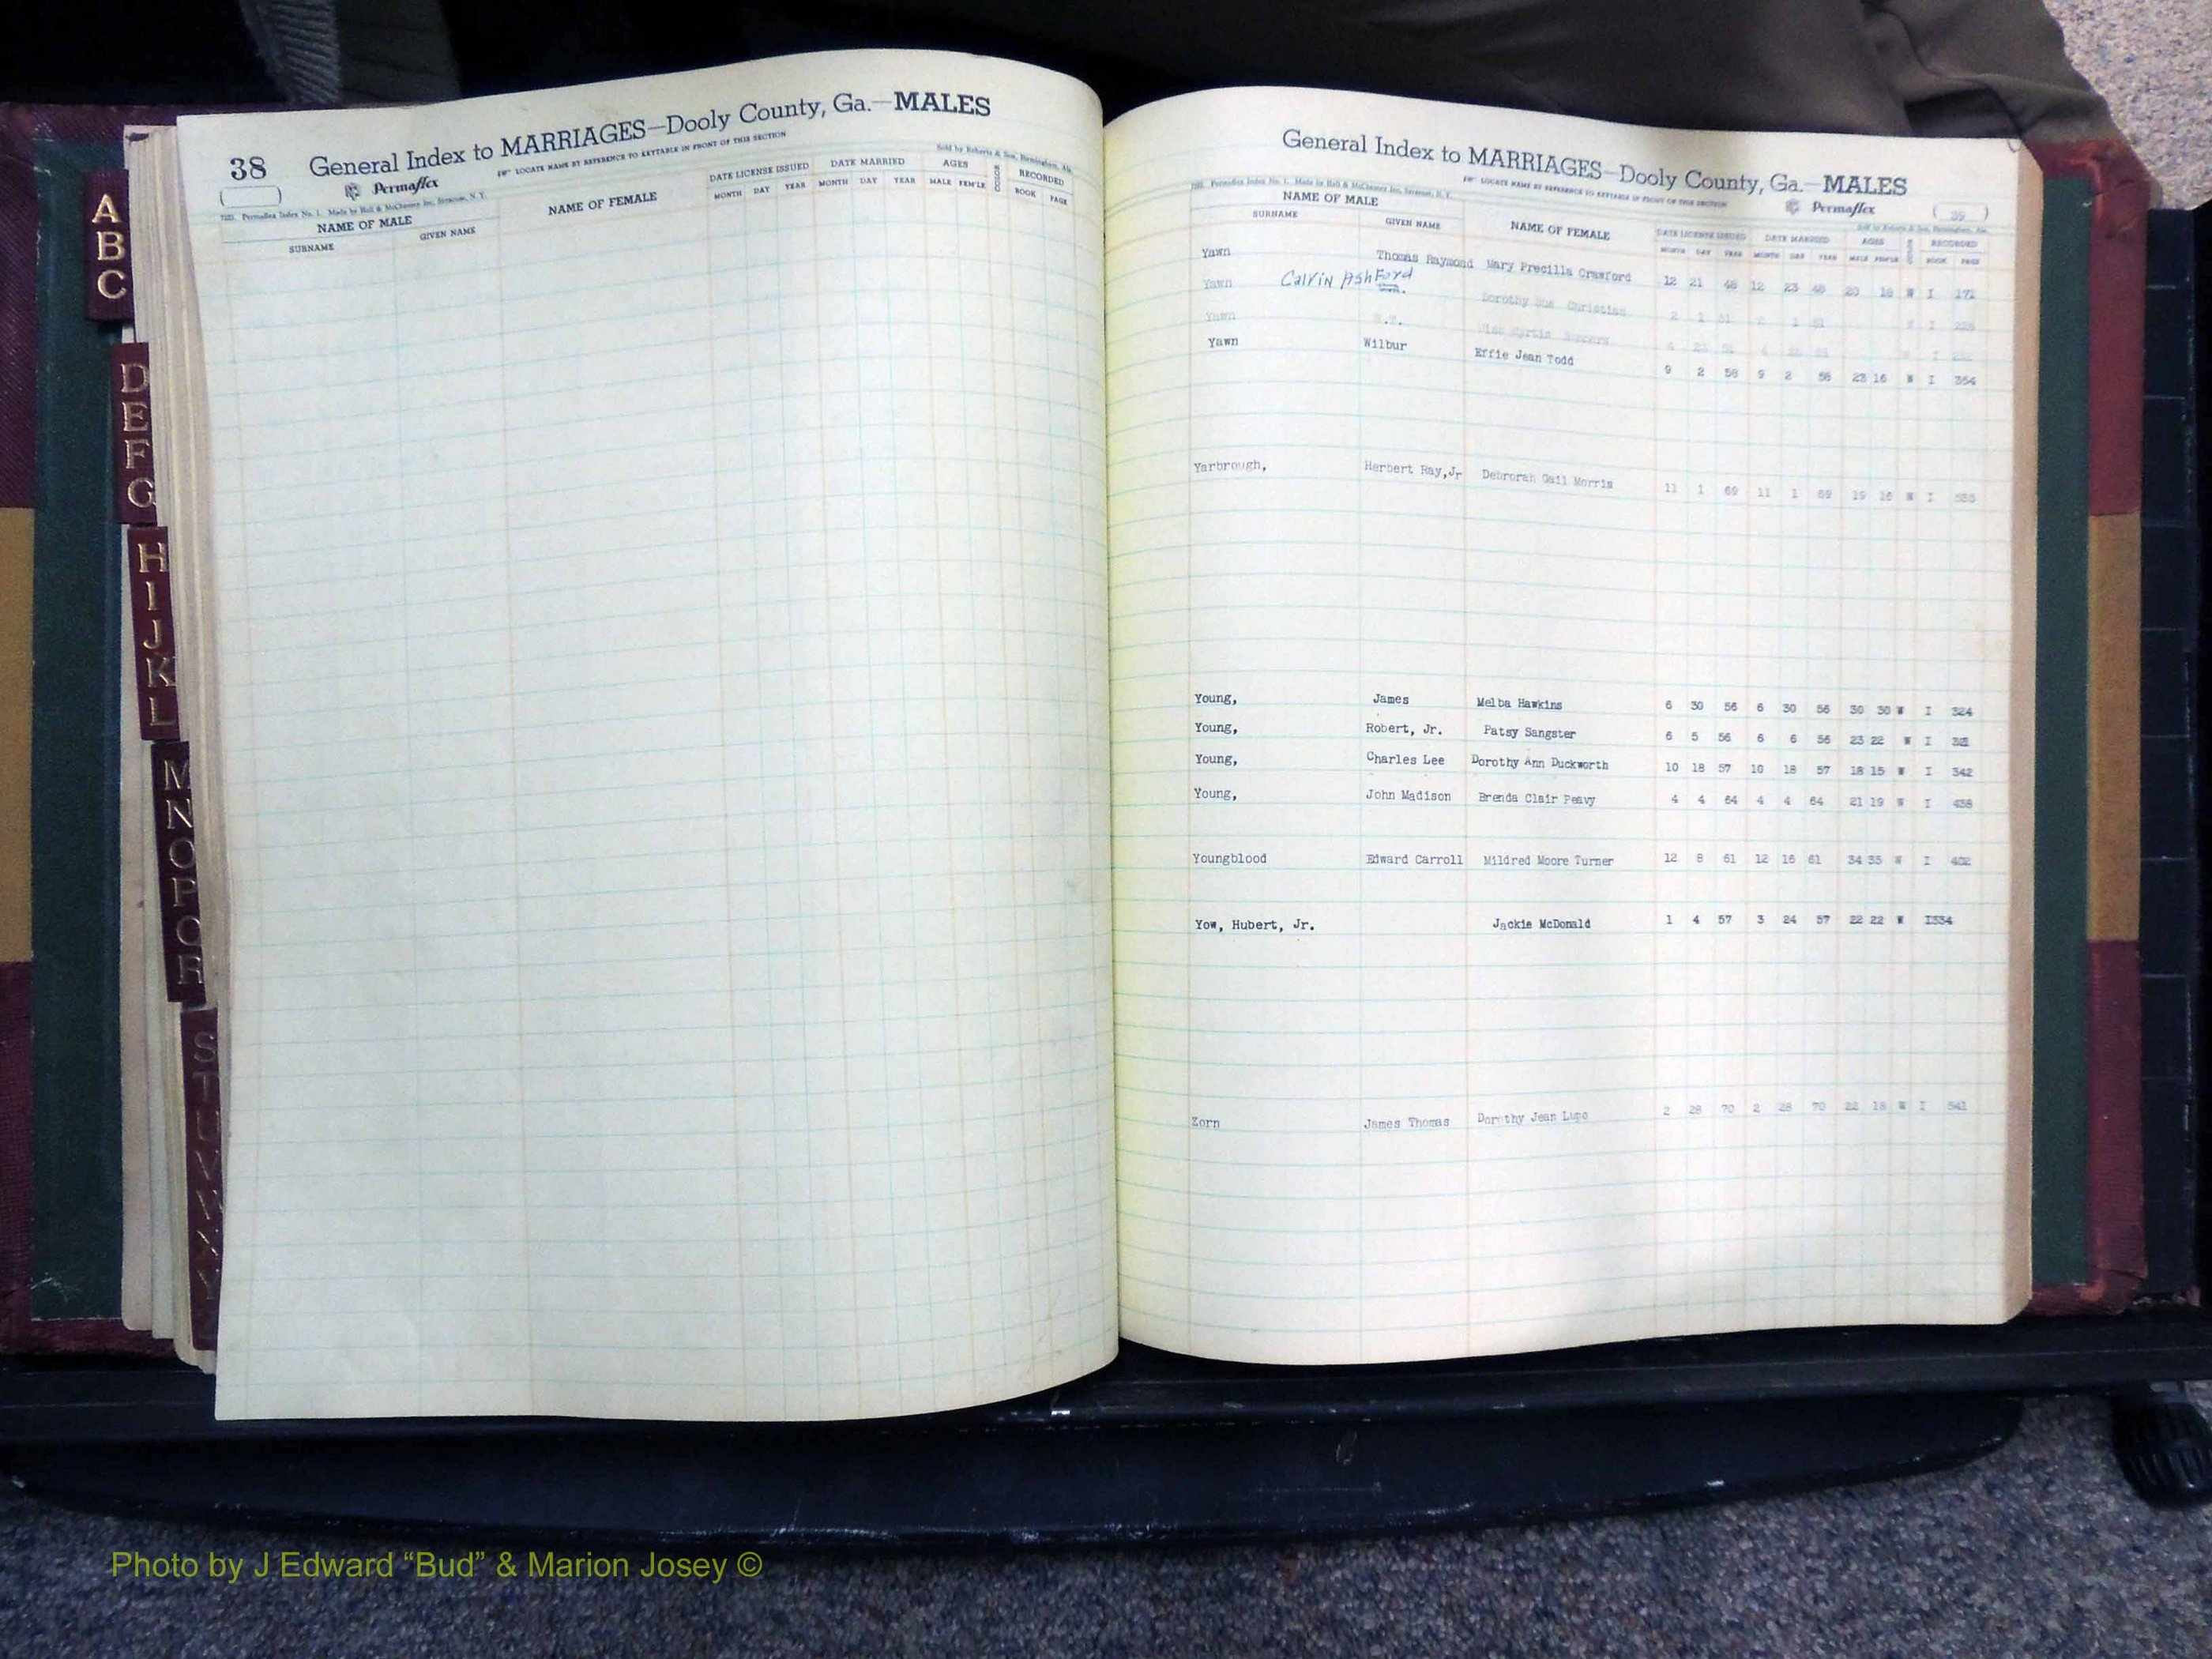 38
General Index to MARRIAGES—Dooly County, Ga.—MALES
LOCATE NAME BY REFERENCE TO KEYTABLE IN FRONT OF THIS SECTION
Permaflex
Sold by Roberts & Son, Birmingham, Ala.
Permaflex Index No. 1. Made by Hall & McChesney Inc, Syracuse, N. Y.
NAME OF MALE NAME OF FEMALE DATE LICENSE ISSUED DATE MARRIED AGES COLOR RECORDED
SURNAME GIVEN NAME MONTH DAY YEAR MONTH DAY YEAR MALE FEM'LE BOOK PAGE
A
B
C
D
E
F
G
H
I
J
K
L
M
N
O
P
Q
R
S
T
U
V
W
X
Y
General Index to MARRIAGES—Dooly County, Ga.—MALES
LOCATE NAME BY REFERENCE TO KEYTABLE IN FRONT OF THIS SECTION
Permaflex
( 39 )
Permaflex Index No. 1. Made by Hall & McChesney Inc, Syracuse, N. Y.
Sold by Roberts & Son, Birmingham, Ala.
NAME OF MALE NAME OF FEMALE DATE LICENSE ISSUED DATE MARRIED AGES COLOR RECORDED
SURNAME GIVEN NAME MONTH DAY YEAR MONTH DAY YEAR MALE FEM'LE BOOK PAGE
Yawn Thomas Raymond Mary Precilla Crawford 12 21 12 23 20 18 W I 171
Yawn Calvin Ashford Dorothy Sue Christian 2 1 51 1 51 I
Yawn Miss Myrtis I
Yawn Wilbur Effie Jean Todd 9 2 58 9 2 58 23 16 W I 354
Yarbrough, Herbert Ray,Jr Debrorah Gail Morris 11 1 69 11 1 69 19 16 W I
Young, James Melba Hawkins 6 30 56 6 30 56 30 30 W I 324
Young, Robert, Jr. Patsy Sangster 6 5 56 6 6 56 23 22 W I
Young, Charles Lee Dorothy Ann Duckworth 10 18 57 10 18 57 18 15 W I 342
Young, John Madison Brenda Clair Peavy 4 4 64 4 4 64 21 19 W I 438
Youngblood Edward Carroll Mildred Moore Turner 12 8 61 12 16 61 34 35 W I 402
Yow, Hubert, Jr. Jackie McDonald 1 4 57 3 24 57 22 22 W I334
Zorn James Thomas Dorothy Jean Lupo 2 28 70 2 28 70 22 18 W I 541
Photo by J Edward “Bud” & Marion Josey ©